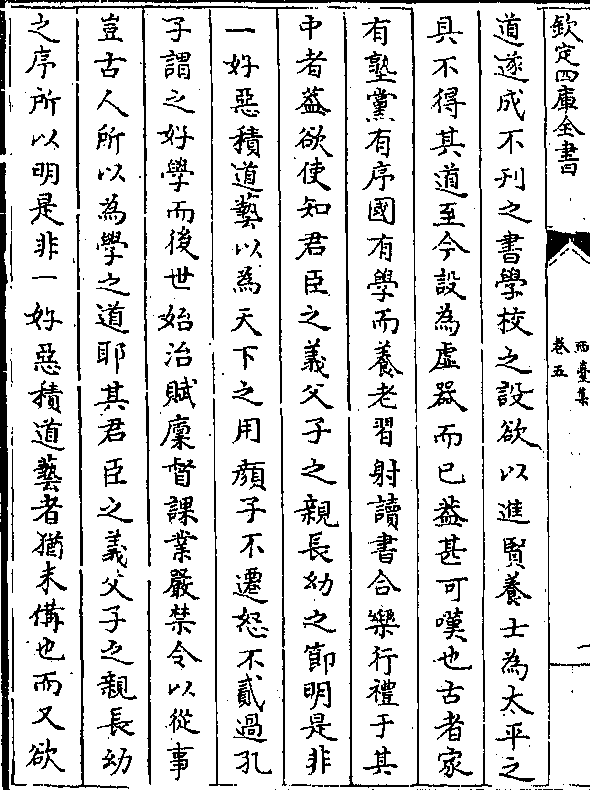 欽定四庫全書
西臺集
卷五
一
道遂成不刋之書學校之設欲以進賢養士為太平之
具不得其道至今設為虛器而已葢甚可嘆也古者家
有塾黨有序國有學而養老習射讀書合樂行禮于其
中者葢欲使知君臣之義父子之親長幼之節明是非
一好惡積道藝以為天下之用顔子不遷怒不貳過孔
子謂之好學而後世始治賦廩督課業嚴禁令以從事
豈古人所以為學之道耶其君臣之義父子之親長幼
之序所以明是非一好惡積道藝者猶未備也而又欲